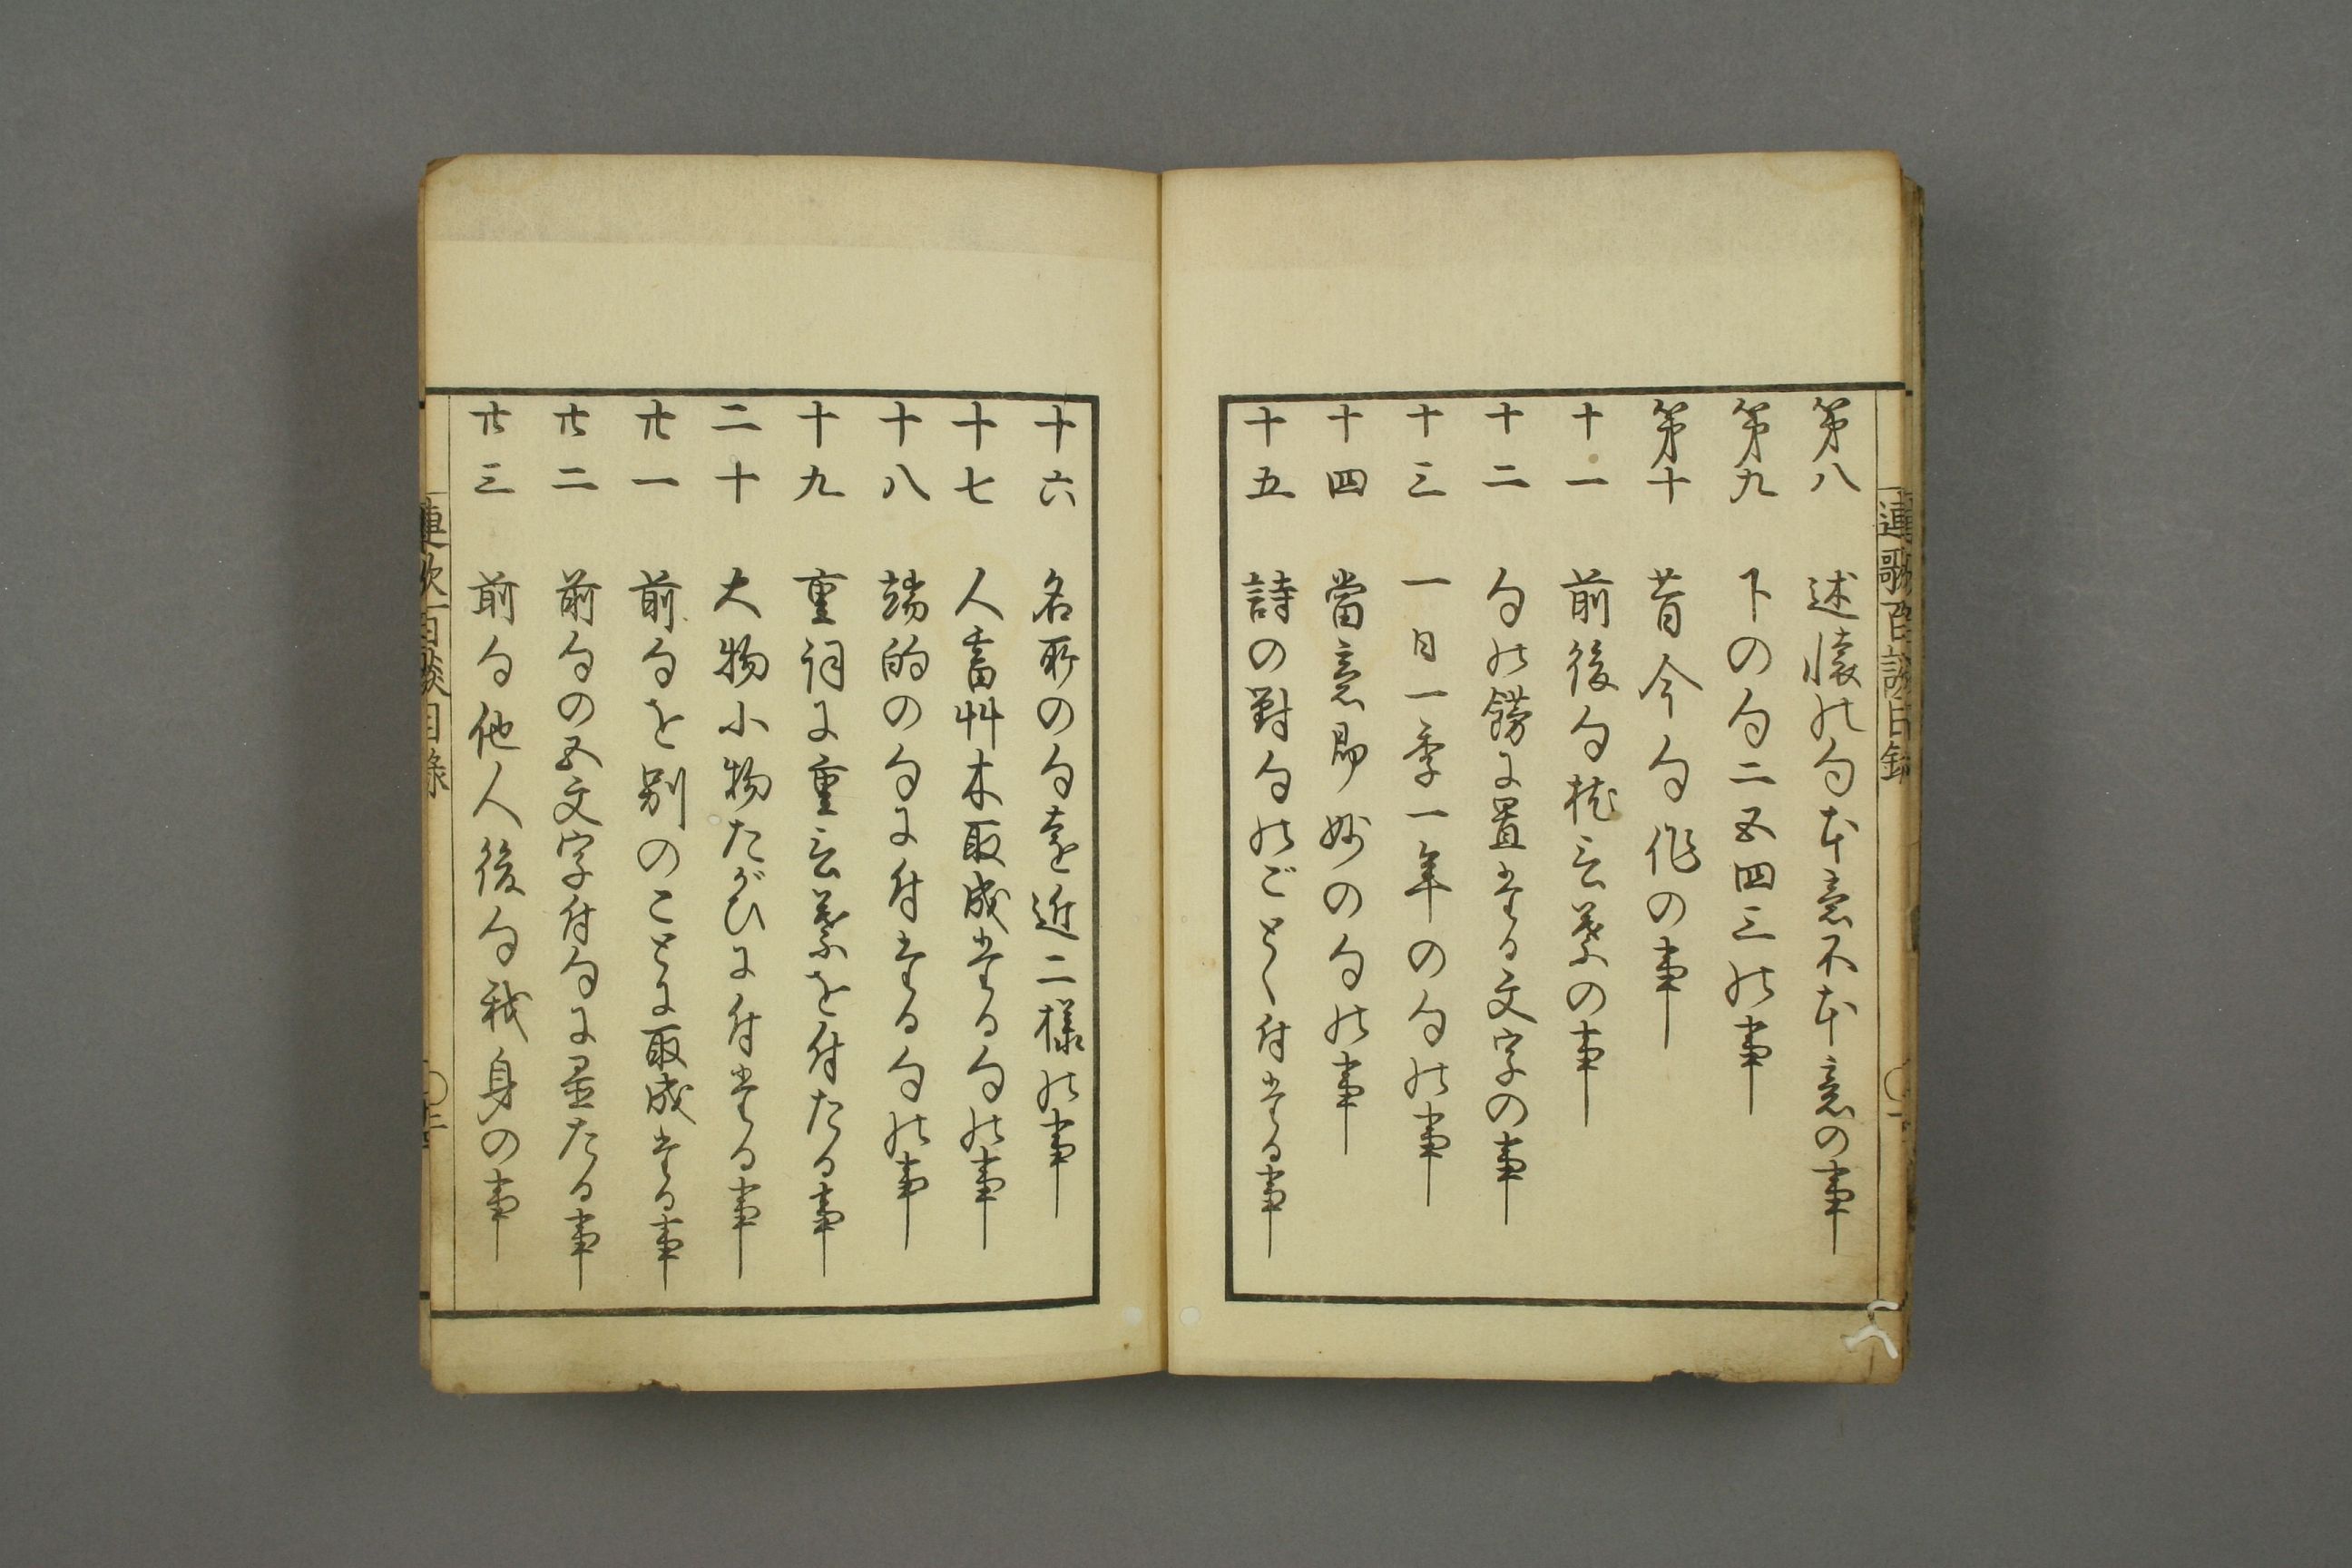 連歌百談目録
第八 述懐の句本意不本意の事
第九 下の句二五四三の事
第十 昔今句作の事
十一 前後句枕言葉の事
十二 句の餝に置たる文字の事
十三 一日一季一年の句の事
十四 當意即妙の句の事
十五 詩の對句のごとく付たる事
十六 名所の句遠近二様の事
十七 人畜艸木取成たる句の事
十八 端的の句に付たる句の事
十九 重詞に重言葉を付たる事
二十 大物小物たがひに付たる事
廿一 前句を別のことに取成たる事
廿二 前句の五文字付句に置たる事
廿三 前句他人後句我身の事
連歌百談目録